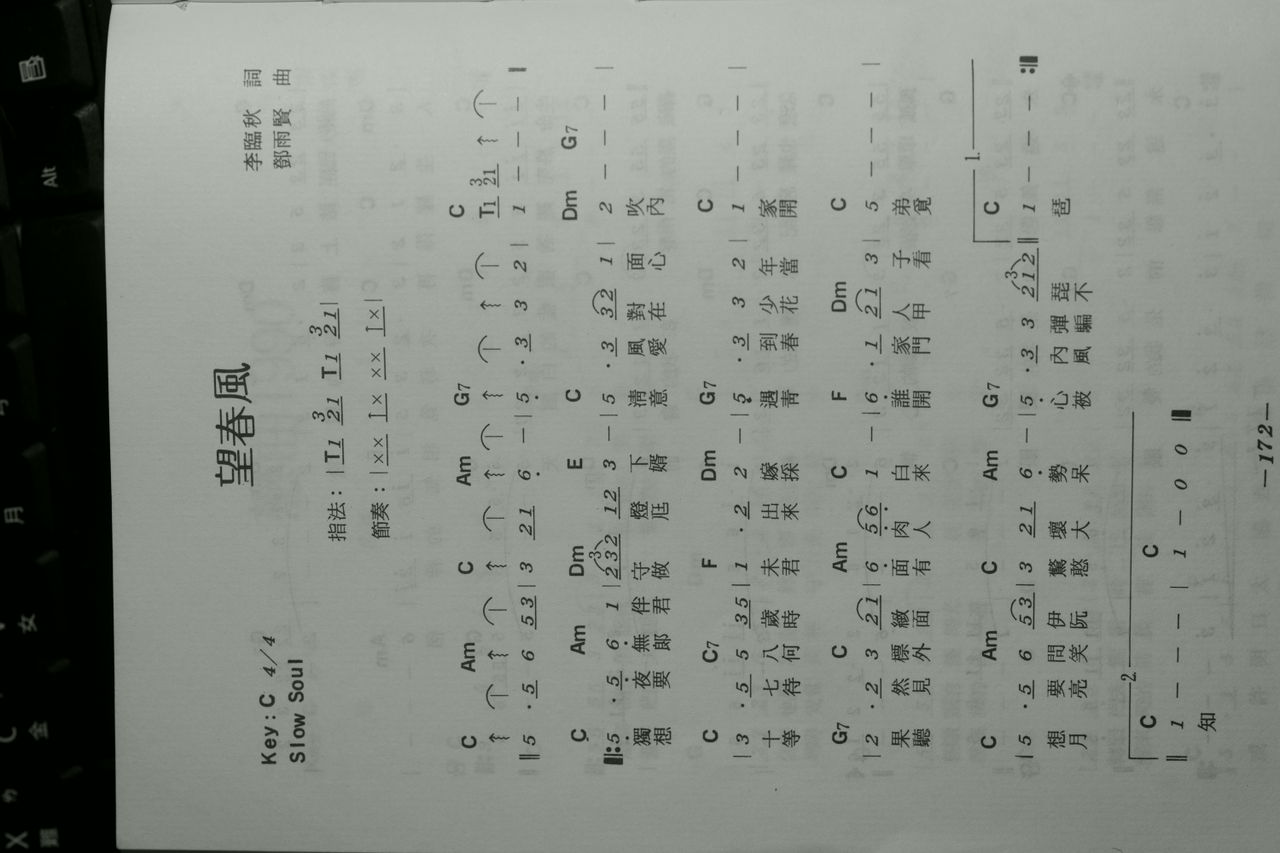 望春風
李臨秋 詞
鄧雨賢 曲
Key: C 4/4
Slow Soul
指法: | T1 21 T1 21 |
節奏: | ×× 1× ×× 1× |
C Am C Am G7 C
T1 21
|| 5 · 5 6 53 | 3 21 6 — | 5 · 3 3 2 | 1 — — — |
C Am Dm E C Dm G7
||: 5 · 5 6 1 | 232 12 3 — | 5 · 3 32 1 | 2 — — — |
獨 夜 無 伴 守 燈 下 清 風 對 面 吹
想 要 郎 君 做 尪 婿 意 愛 在 心 內
C C7 F Dm G7 C
| 3 · 5 5 35 | 1 · 2 2 — | 5 · 3 3 2 | 1 — — — |
十 七 八 歲 未 出 嫁 遇 到 少 年 家
等 待 何 時 君 來 採 青 春 花 當 開
G7 C Am C F Dm C
| 2 · 2 3 21 | 6 56 1 — | 6 · 1 21 3 | 5 — — — |
果 然 標 緻 面 肉 白 誰 家 人 子 弟
聽 見 外 面 有 人 來 開 門 甲 看 覓
1.
C Am C Am G7 C
| 5 · 5 6 53 | 3 21 6 — | 5 · 3 3 212 || 1 — — — :||
想 要 問 伊 驚 壞 勢 心 內 彈 琵 琶
月 亮 笑 阮 憨 大 呆 被 風 騙 不
2.
C C
|| 1 — — — | 1 — 0 0 ||
知
—172—
Alt